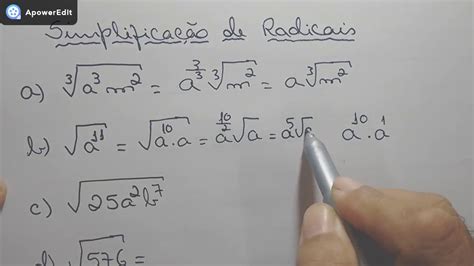 ApowerEdit
Simplificação de Radicais
a) ∛(a³m²) = a^(3/3) ∛(m²) = a ∛(m²)
b) √(a¹¹) = √(a¹⁰.a) = a^(10/2) √a = a⁵√a a¹⁰.a¹
c) √(25a²b⁷)
d) √576 =